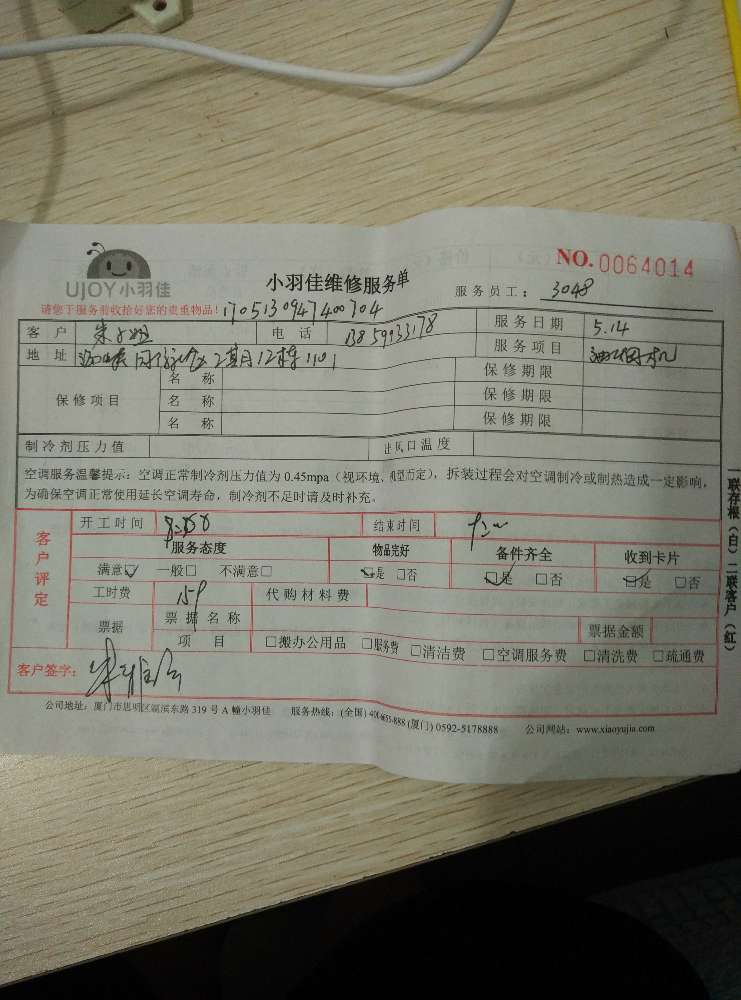 UJOY小羽佳
小羽佳维修服务单
NO. 0064014
请您于服务前收拾好您的贵重物品!
1705130947400704
服务员工: 3048
客户 朱小姐 电话 13859933178 服务日期 5.14
地址 2期12栋1101 服务项目 油烟机
保修项目 名称 保修期限
名称 保修期限
名称 保修期限
制冷剂压力值 进风口温度
空调服务温馨提示:空调正常制冷剂压力值为0.45mpa(视环境、机型而定),拆装过程会对空调制冷或制热造成一定影响,
为确保空调正常使用延长空调寿命,制冷剂不足时请及时补充。
客户评定
开工时间 结束时间
服务态度 物品完好 备件齐全 收到卡片
满意☑ 一般□ 不满意□ ☑是 □否 ☑是 □否 ☑是 □否
工时费 159 代购材料费
票据 票据名称 票据金额
项目 □搬办公用品 □服务费 □清洁费 □空调服务费 □清洗费 □疏通费
客户签字:
公司地址:厦门市思明区湖滨东路319号A幢小羽佳 服务热线:(全国) 400-6655-888 (厦门) 0592-5178888 公司网站:www.xiaoyujia.com
一联存根(白)二联客户(红)